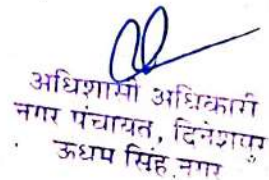 अधिशासी अधिकारी
नगर पंचायत, दिनेशपुर
ऊधम सिंह नगर